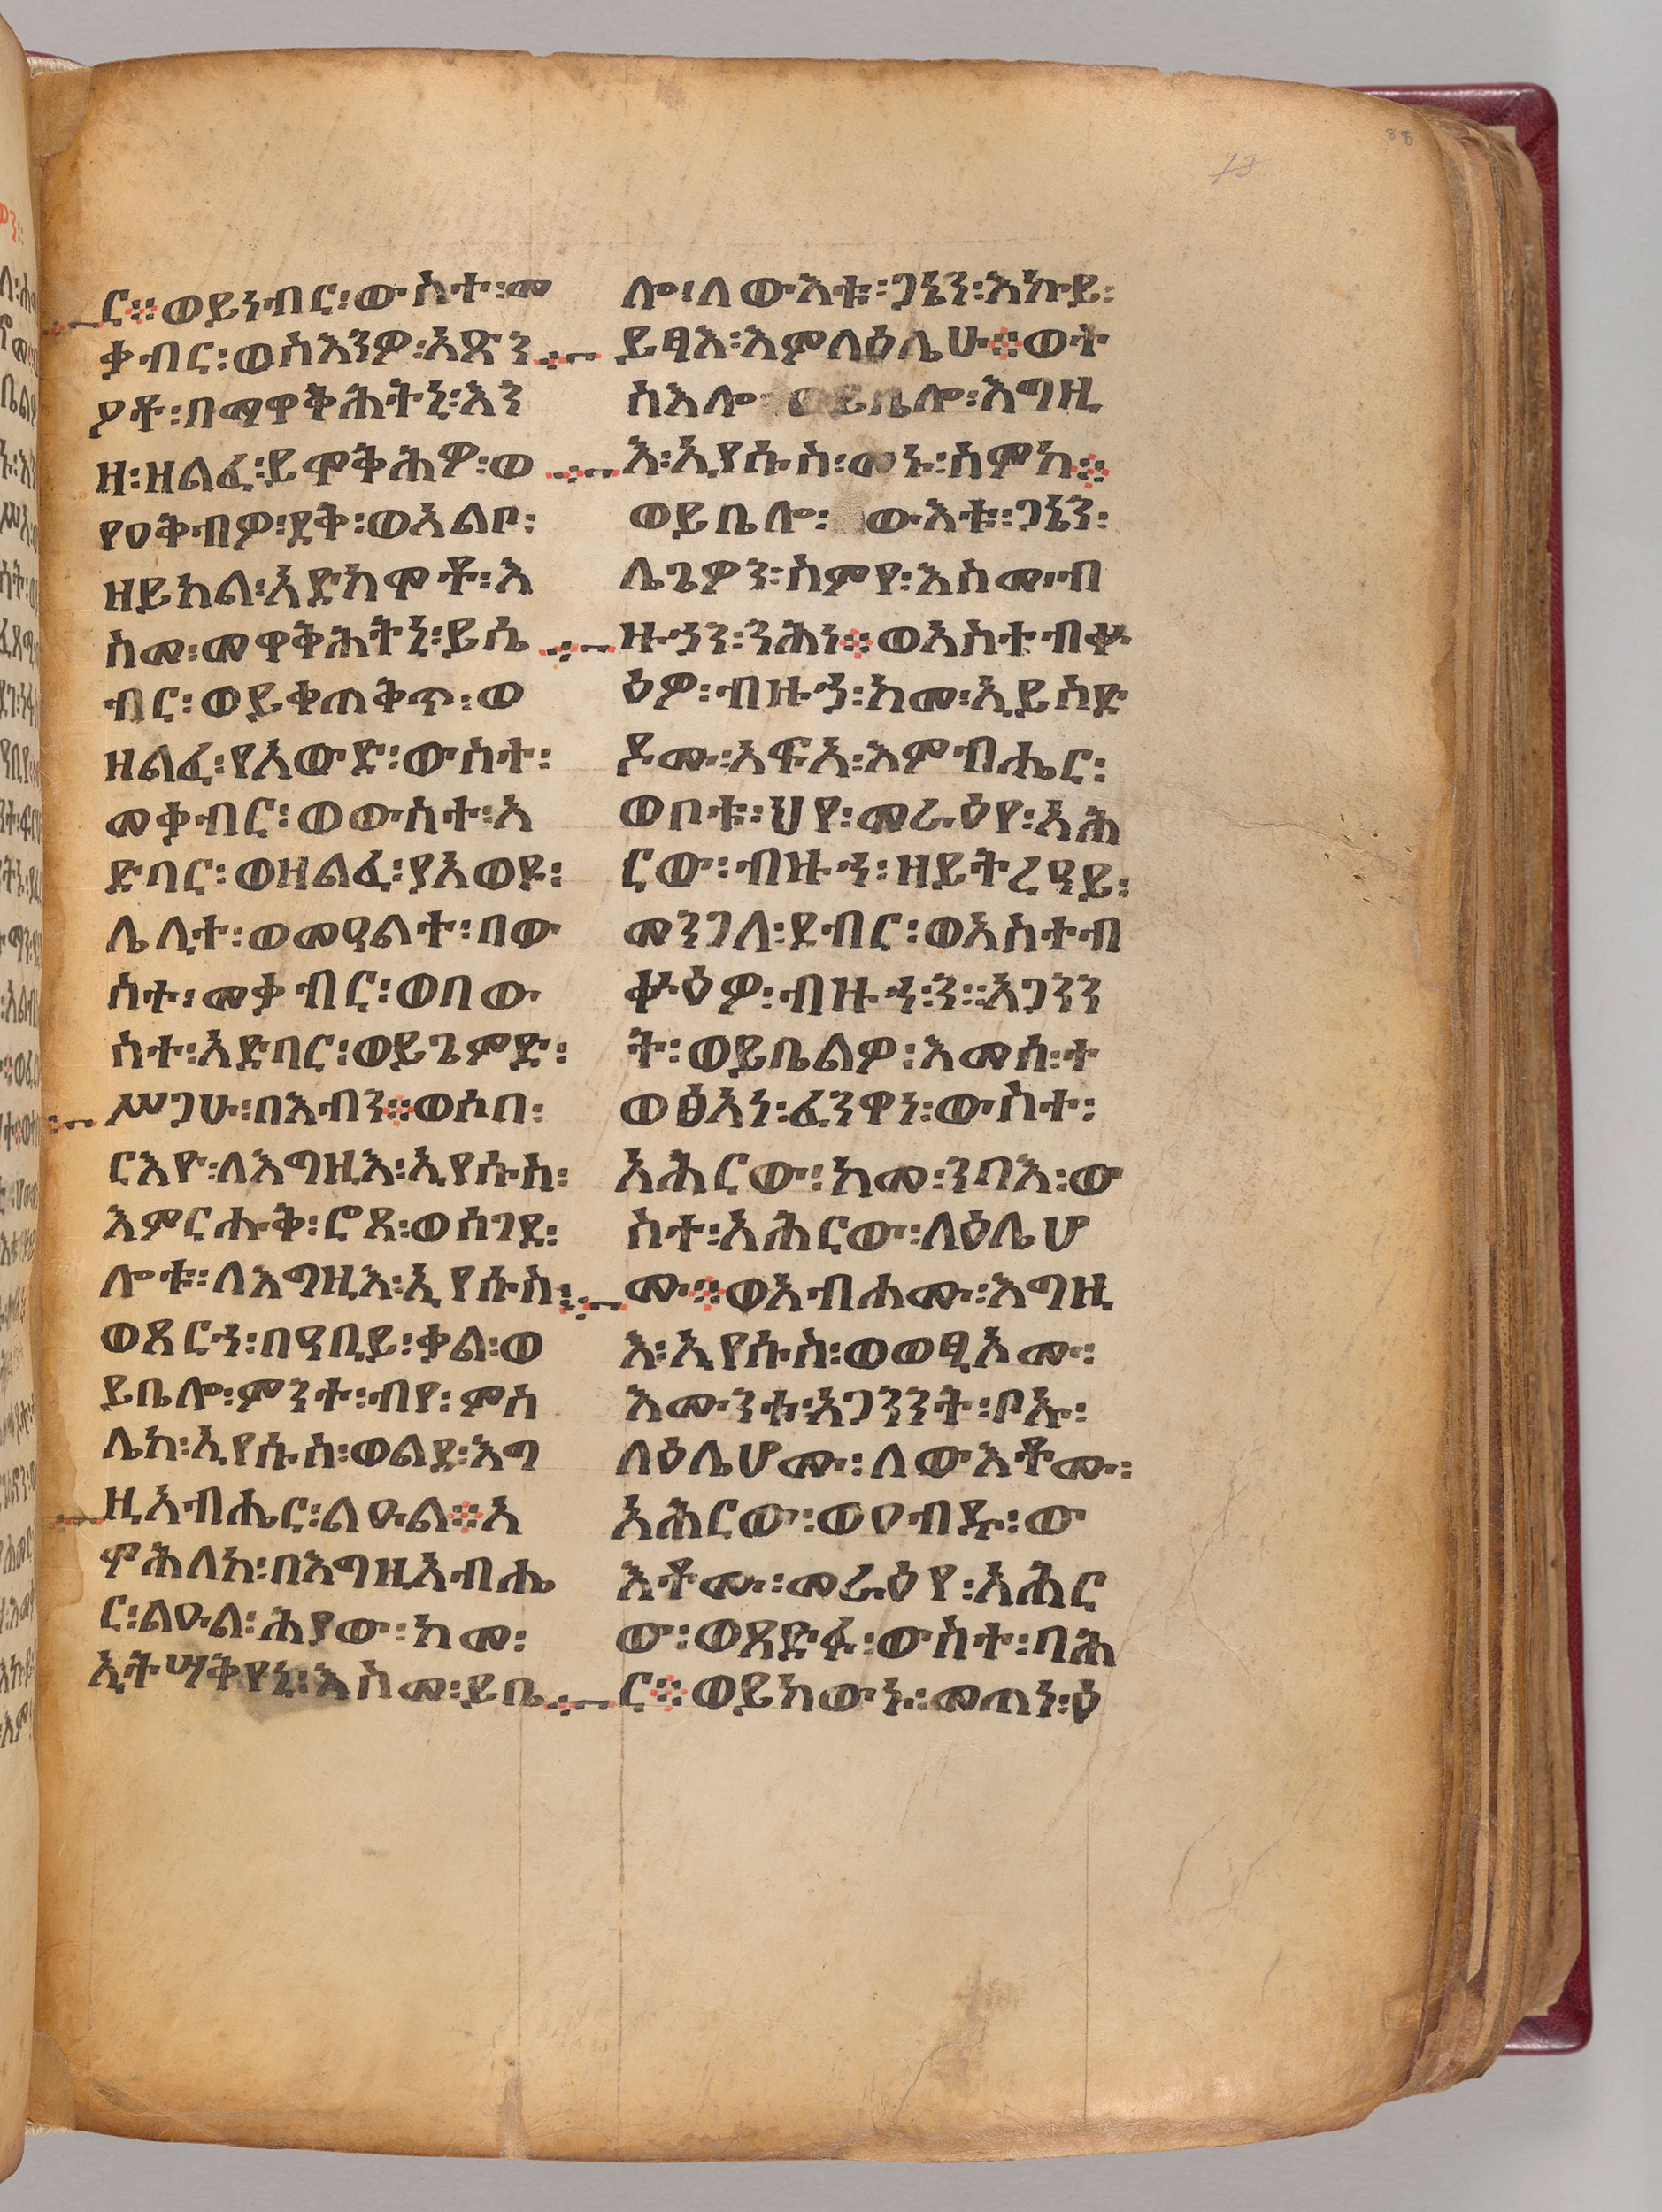 73
88
ር፨ወይነብር፡ውስተ፡መ
ቃብር፡ወስእንዎ፡አጽን
ዖቶ፡በማዋቅሕትኒ፡እን
ዘ፡ዘልፈ፡ይሞቅሕዎ፡ወ
የዐቅብዎ፡ደቅ፡ወአልቦ፡
ዘይክል፡አድክሞቶ፡እ
ስመ፡መዋቅሕትኒ፡ይሴ
ብር፡ወይቀጠቅጥ፡ወ
ዘልፈ፡የአውድ፡ውስተ፡
መቃብር፡ወውስተ፡አ
ድባር፡ወዘልፈ፡ያአወዩ፡
ሌሊተ፡ወመዓልተ፡በው
ስተ፡መቃብር፡ወበው
ስተ፡አድባር፡ወይጌምድ፡
ሥጋሁ፡በእብን፨ወሶበ፡
ርእዮ፡ለእግዚእ፡ኢየሱስ፡
እምርሑቅ፡ሮጸ፡ወሰገደ፡
ሎቱ፡ለእግዚእ፡ኢየሱስ፡
ወጸርኀ፡በዓቢይ፡ቃል፡ወ
ይቤሎ፡ምንተ፡ብየ፡ምስ
ሌከ፡ኢየሱስ፡ወልደ፡እግ
ዚአብሔር፡ልዑል፨አ
ምሕለከ፡በእግዚአብሔ
ር፡ልዑል፡ሕያው፡ከመ፡
ኢትሣቅየኒ፡እስመ፡ይቤ
ሎ፡ለውእቱ፡ጋኔን፡እኩይ፡
ይፃእ፡እምላዕሌሁ፨ወተ
ስእሎ፡ወይቤሎ፡እግዚ
እ፡ኢየሱስ፡መኑ፡ስምከ፨
ወይቤሎ፡ውእቱ፡ጋኔን፡
ሌጌዎን፡ስምየ፡እስመ፡ብ
ዙኃን፡ንሕነ፨ወአስተብቍ
ዕዎ፡ብዙኀ፡ከመ፡ኢይስድ
ዶሙ፡አፍአ፡እምብሔር፡
ወቦቱ፡ህየ፡መራዕየ፡አሕ
ርው፡ብዙኅ፡ዘይትረዓይ፡
መንገለ፡ደብር፡ወአስተብ
ቍዕዎ፡ብዙኅ፡ን፡፡አጋንን
ት፡ወይቤልዎ፡እመሰ፡ተ
ወፅአነ፡ፈንዋነ፡ውስተ፡
አሕርው፡ከመ፡ንባእ፡ው
ስተ፡አሕርው፡ላዕሌሆ
ሙ፨ወአብሐሙ፡እግዚ
እ፡ኢየሱስ፡ወወፂኦሙ፡
እሙንቱ፡አጋንንት፡ቦኡ፡
ላዕሌሆሙ፡ለውእቶሙ፡
አሕርው፡ወዐብዱ፡ው
እቶሙ፡መራዕየ፡አሕር
ው፡ወጸድፉ፡ውስተ፡ባሕ
ር፨ወይከውኑ፡መጠነ፡ዕ